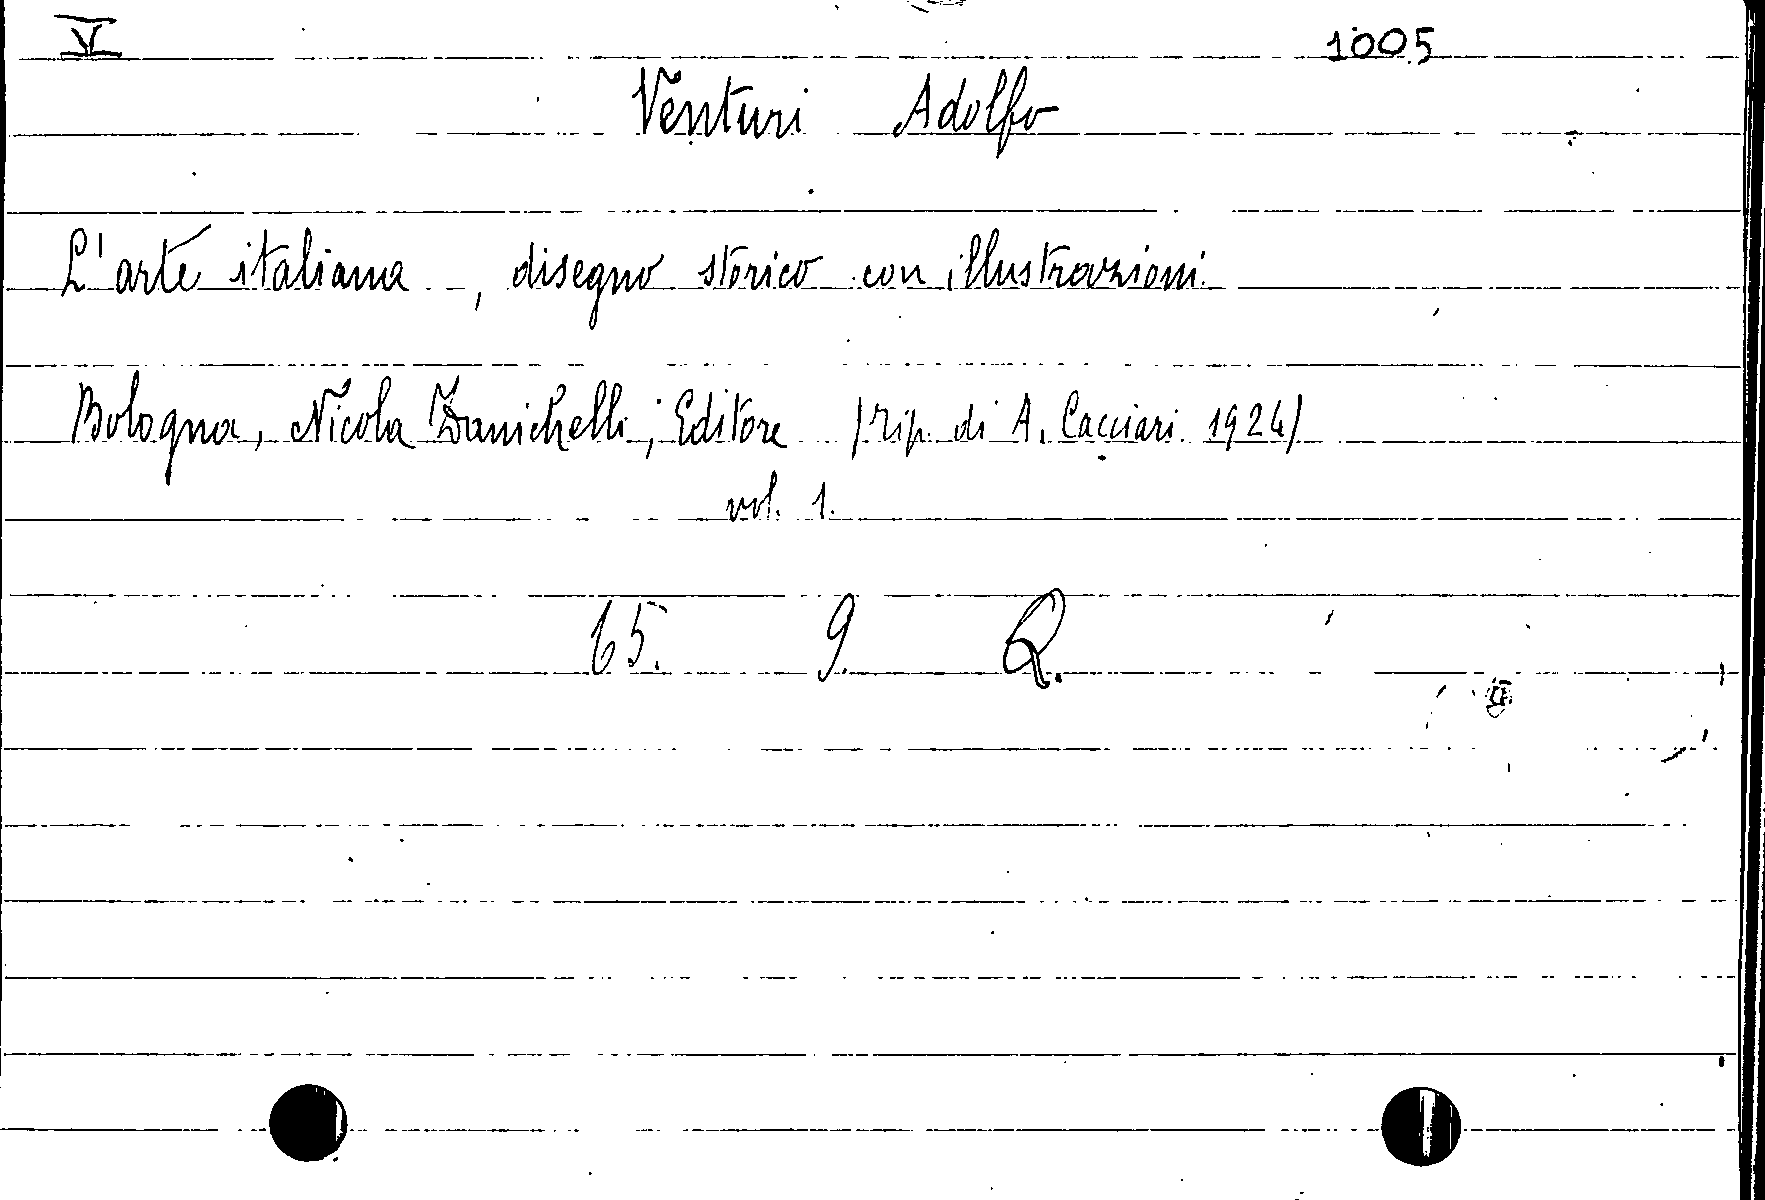 V 1005
Venturi Adolfo
L'arte italiana, disegno storico con illustrazioni.
Bologna, Nicola Zanichelli, Editore (rip. di A. Cacciari. 1924)
vol. 1.
65. 9. Q.